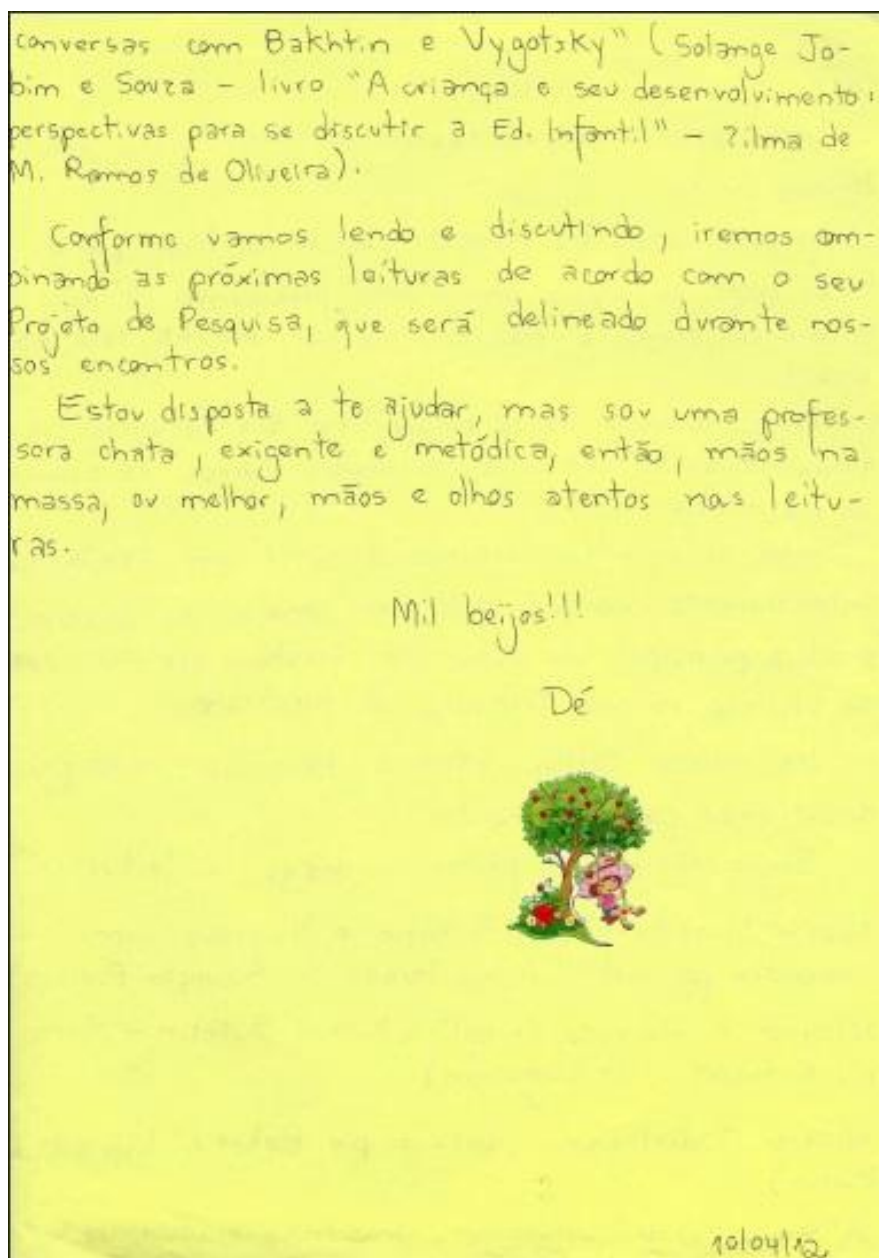 conversas com Bakhtin e Vygotsky" (Solange Jo-
bim e Souza - livro "A criança e seu desenvolvimento:
perspectivas para se discutir a Ed. Infantil" - Zilma de
M. Ramos de Oliveira).
Conforme vamos lendo e discutindo, iremos com-
binando as próximas leituras de acordo com o seu
Projeto de Pesquisa, que será delineado durante nos-
sos encontros.
Estou disposta a te ajudar, mas sou uma profes-
sora chata, exigente e metódica, então, mãos na
massa, ou melhor, mãos e olhos atentos nas leitu-
ras.
Mil beijos!!!
Dé
10/04/12